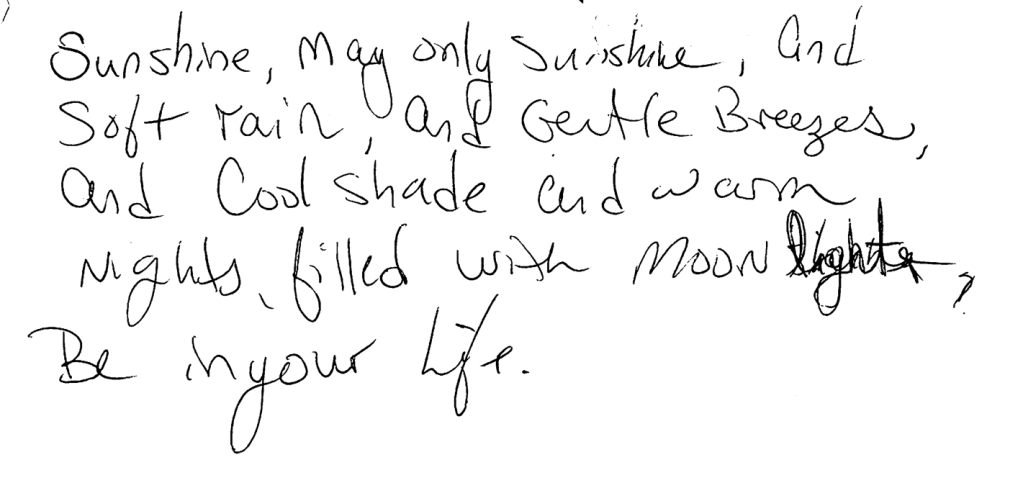 Sunshine, May only Sunshine, and
Soft rain, and Gentle Breezes,
and Cool shade and warm
Nights, filled with MOON light,
Be in your Life.